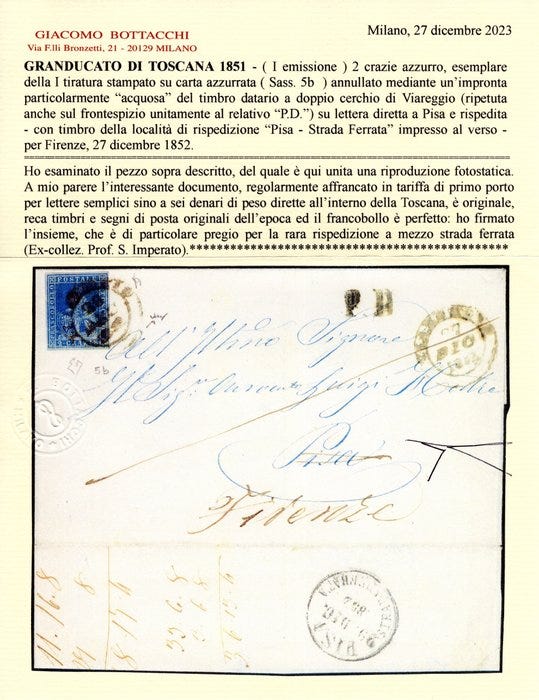 GIACOMO BOTTACCHI
Via F.lli Bronzetti, 21 - 20129 MILANO
Milano, 27 dicembre 2023
GRANDUCATO DI TOSCANA 1851 - ( I emissione ) 2 crazie azzurro, esemplare
della I tiratura stampato su carta azzurrata ( Sass. 5b ) annullato mediante un'impronta
particolarmente “acquosa” del timbro datario a doppio cerchio di Viareggio (ripetuta
anche sul frontespizio unitamente al relativo “P.D.”) su lettera diretta a Pisa e rispedita
- con timbro della località di rispedizione “Pisa - Strada Ferrata” impresso al verso -
per Firenze, 27 dicembre 1852.
Ho esaminato il pezzo sopra descritto, del quale è qui unita una riproduzione fotostatica.
A mio parere l'interessante documento, regolarmente affrancato in tariffa di primo porto
per lettere semplici sino a sei denari di peso dirette all'interno della Toscana, è originale,
reca timbri e segni di posta originali dell'epoca ed il francobollo è perfetto: ho firmato
l'insieme, che è di particolare pregio per la rara rispedizione a mezzo strada ferrata
(Ex-collez. Prof. S. Imperato).************************************************
P. D
27
DIC
5b
All'Illmo Signore
Il Sigr. Luigi
Pisa
Firenze
11. 16. 8
PISA